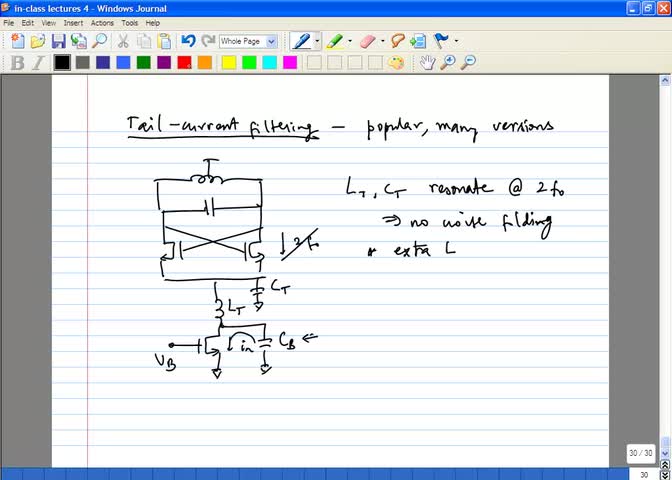 in-class lectures 4 - Windows Journal
File Edit View Insert Actions Tools Help
Whole Page
B I
Tail-current filtering - popular, many versions
LT, CT resonate @ 2fo
⇒ no noise filding
* extra L
2fo
CT
LT
in
CB ⇐
VB
30 / 30
30